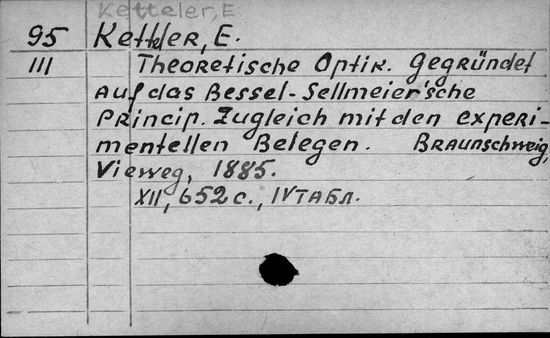 Ketteler, E.
95 Ketteler, E.
III Theoretische Optik. Gegründet
auf das Bessel-Sellmeier'sche
Princip. Zugleich mit den experi-
mentellen Belegen. Braunschweig,
Vieweg, 1885.
XII, 652 с., IV табл.